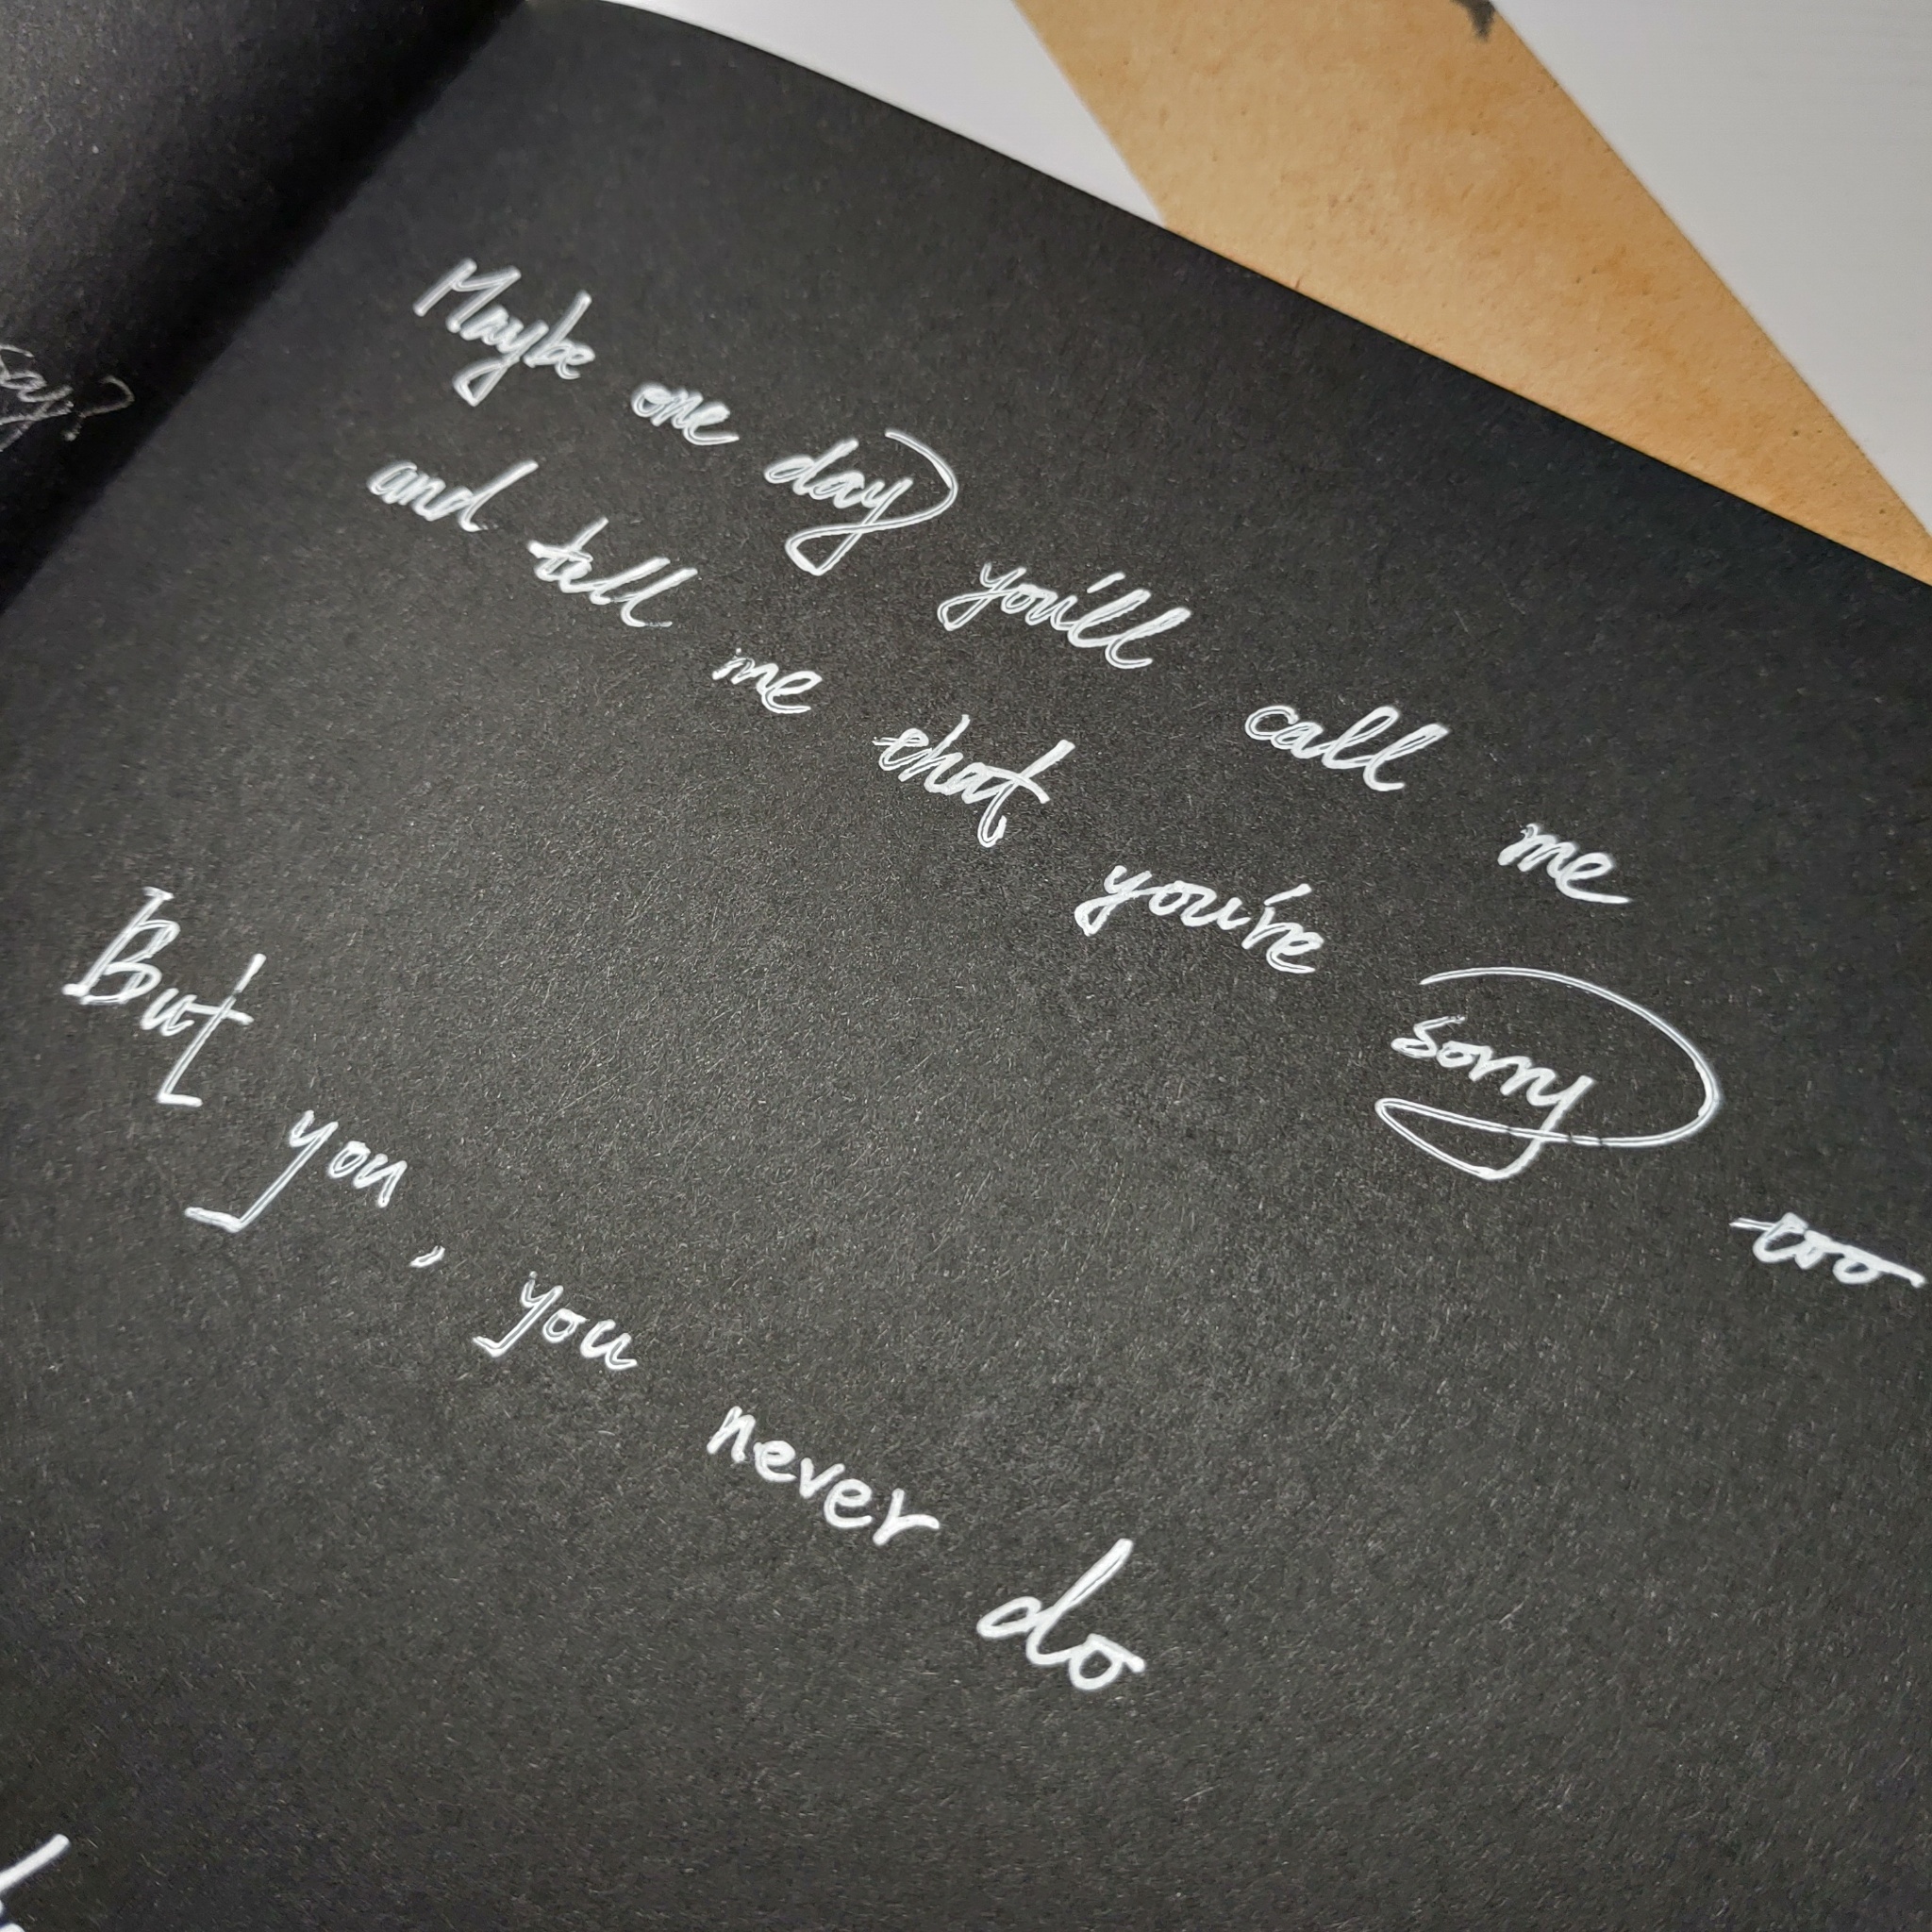 say?
Maybe one day you'll call me
and tell me that you're sorry too
But you, you never do